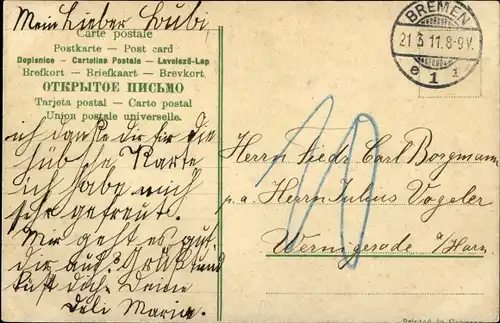 Mein lieber Bubi,
Carte postale
Postkarte - Post card
Dopisnice - Cartolina Postale - Levelező-Lap
Brefkort - Briefkaart - Brevkort.
ОТКРЫТОЕ ПИСЬМО
Tarjeta postal - Carto postal
Union postale universelle.
ich danke dir für die
hübsche Karte
ich habe mich
sehr gefreut.
Mir geht es gut,
dir auch? Grüßt und
küßt dich Deine
Maria.
BREMEN
21.3.11.8-9V.
1
10
Herrn Carl Borgmann
p. a. Herrn Julius Vogeler
Wernigerode a/Harz
Printed in Germany